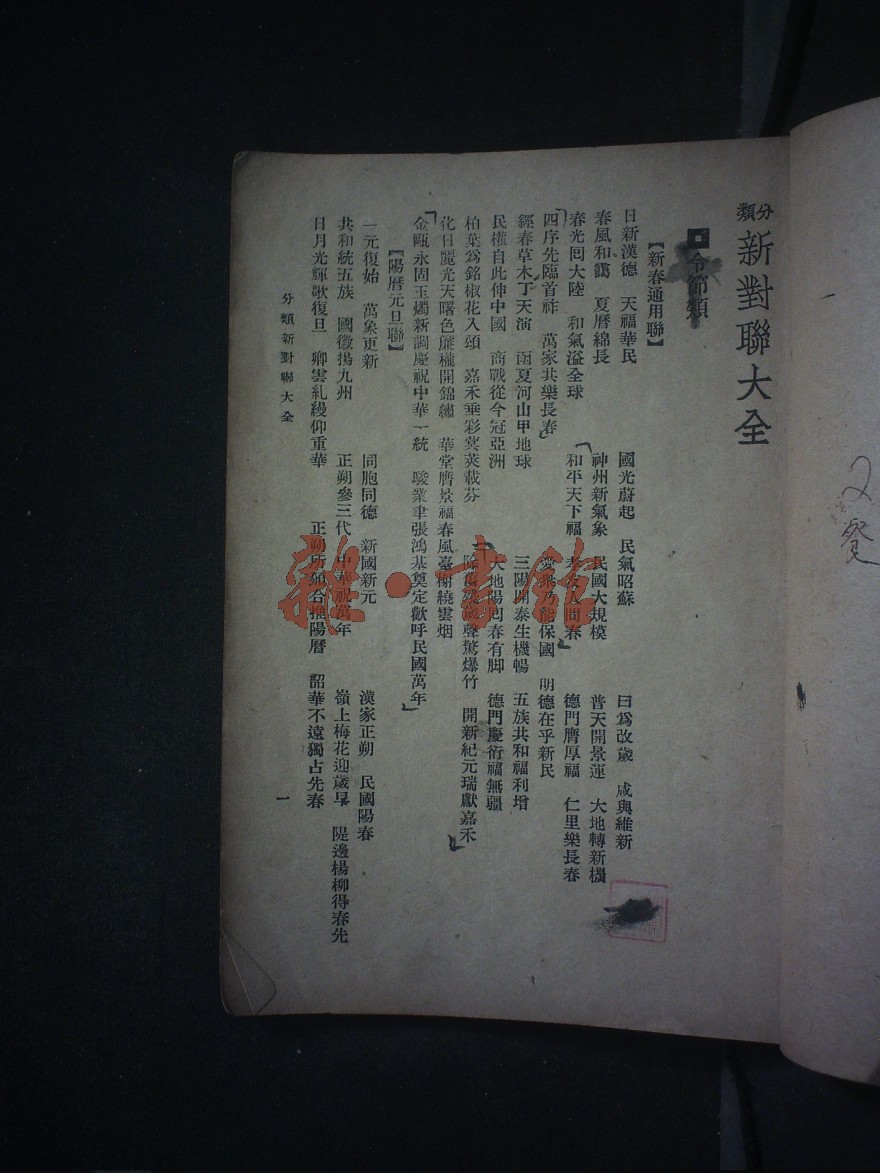 分類新對聯大全
令節類
【新春通用聯】
日新漢德　天福華民　國光蔚起　民氣昭蘇　曰爲改歲　咸與維新
春風和靄　夏曆綿長　神州新氣象　民國大規模　普天開景運　大地轉新機
春光囘大陸　和氣溢全球　和平天下福　孝友人間春　德門膺厚福　仁里樂長春
四序先臨首祚　萬家共樂長春　愛衆乃能保國　明德在乎新民
經春草木丁天演　函夏河山甲地球　三陽開泰生機暢　五族共和福利增
民權自此伸中國　商戰從今冠亞洲　大地陽囘春有脚　德門慶衍福無疆
柏葉爲銘椒花入頌　嘉禾垂彩蓂莢載芬　除舊歲聲驚爆竹　開新紀元瑞獻嘉禾
化日麗光天曙色簾櫳開錦繡　華堂膺景福春風臺榭繞雲烟
金甌永固玉燭新調慶祝中華一統　駿業聿張鴻基奠定歡呼民國萬年
【陽曆元旦聯】
一元復始　萬象更新　同胞同德　新國新元　漢家正朔　民國陽春
共和統五族　國徽揚九州　正朔參三代　中華祝萬年　嶺上梅花迎歲早　隄邊楊柳得春先
日月光輝歌復旦　卿雲糺縵仰重華　正朔所頒合推陽曆　韶華不遠獨占先春
分類新對聯大全
一
雜·書館